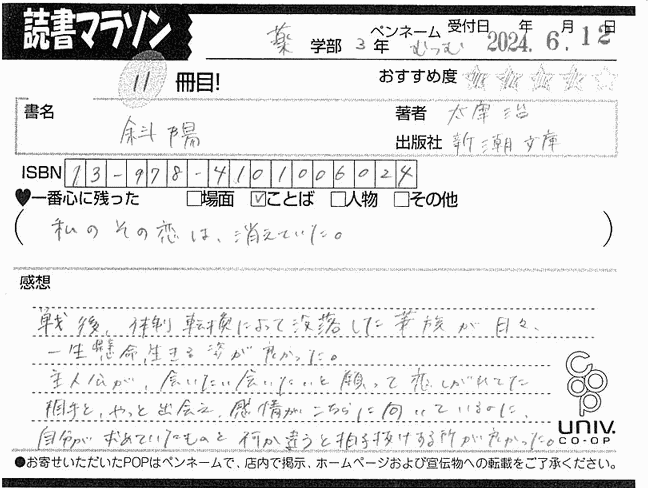 読書マラソン
薬 学部 3 年
ペンネーム むつむ
受付日 2024年 6月 12日
11 冊目!
おすすめ度 ★★★★☆
書名 斜陽
著者 太宰治
出版社 新潮文庫
ISBN 13-978-4101006024
♥一番心に残った □場面 ☑ことば □人物 □その他
(私のその恋は、消えていた。)
感想
戦後、体制転換によって没落した華族が日々、
一生懸命生きる姿が良かった。
主人公が、会いたい会いたいと願って恋しがれてた
相手と、やっと出会え、感情がこちらに向いているのに、
自分が求めていたものと何か違うと拍子抜けする所が良かった。
coop
UNIV.
CO-OP
●お寄せいただいたPOPはペンネームで、店内で掲示、ホームページおよび宣伝物への転載をご了承ください。